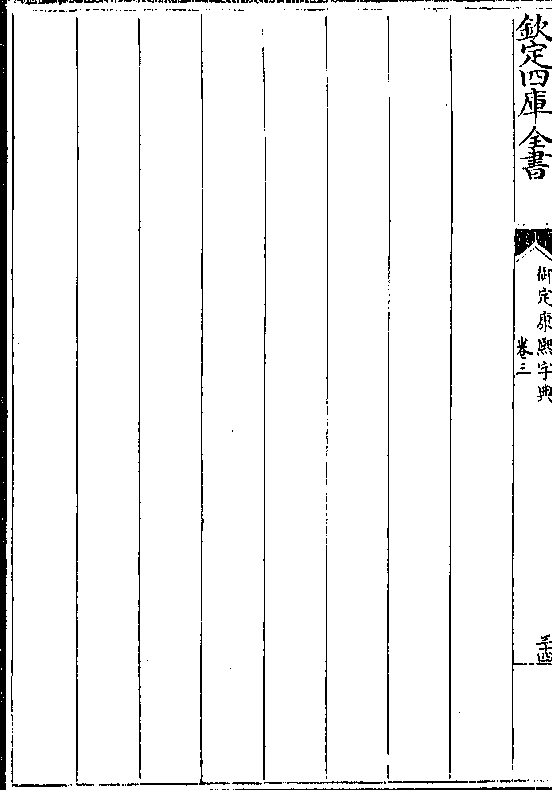 欽定四庫全書
御定康熙字典
卷三
三十四